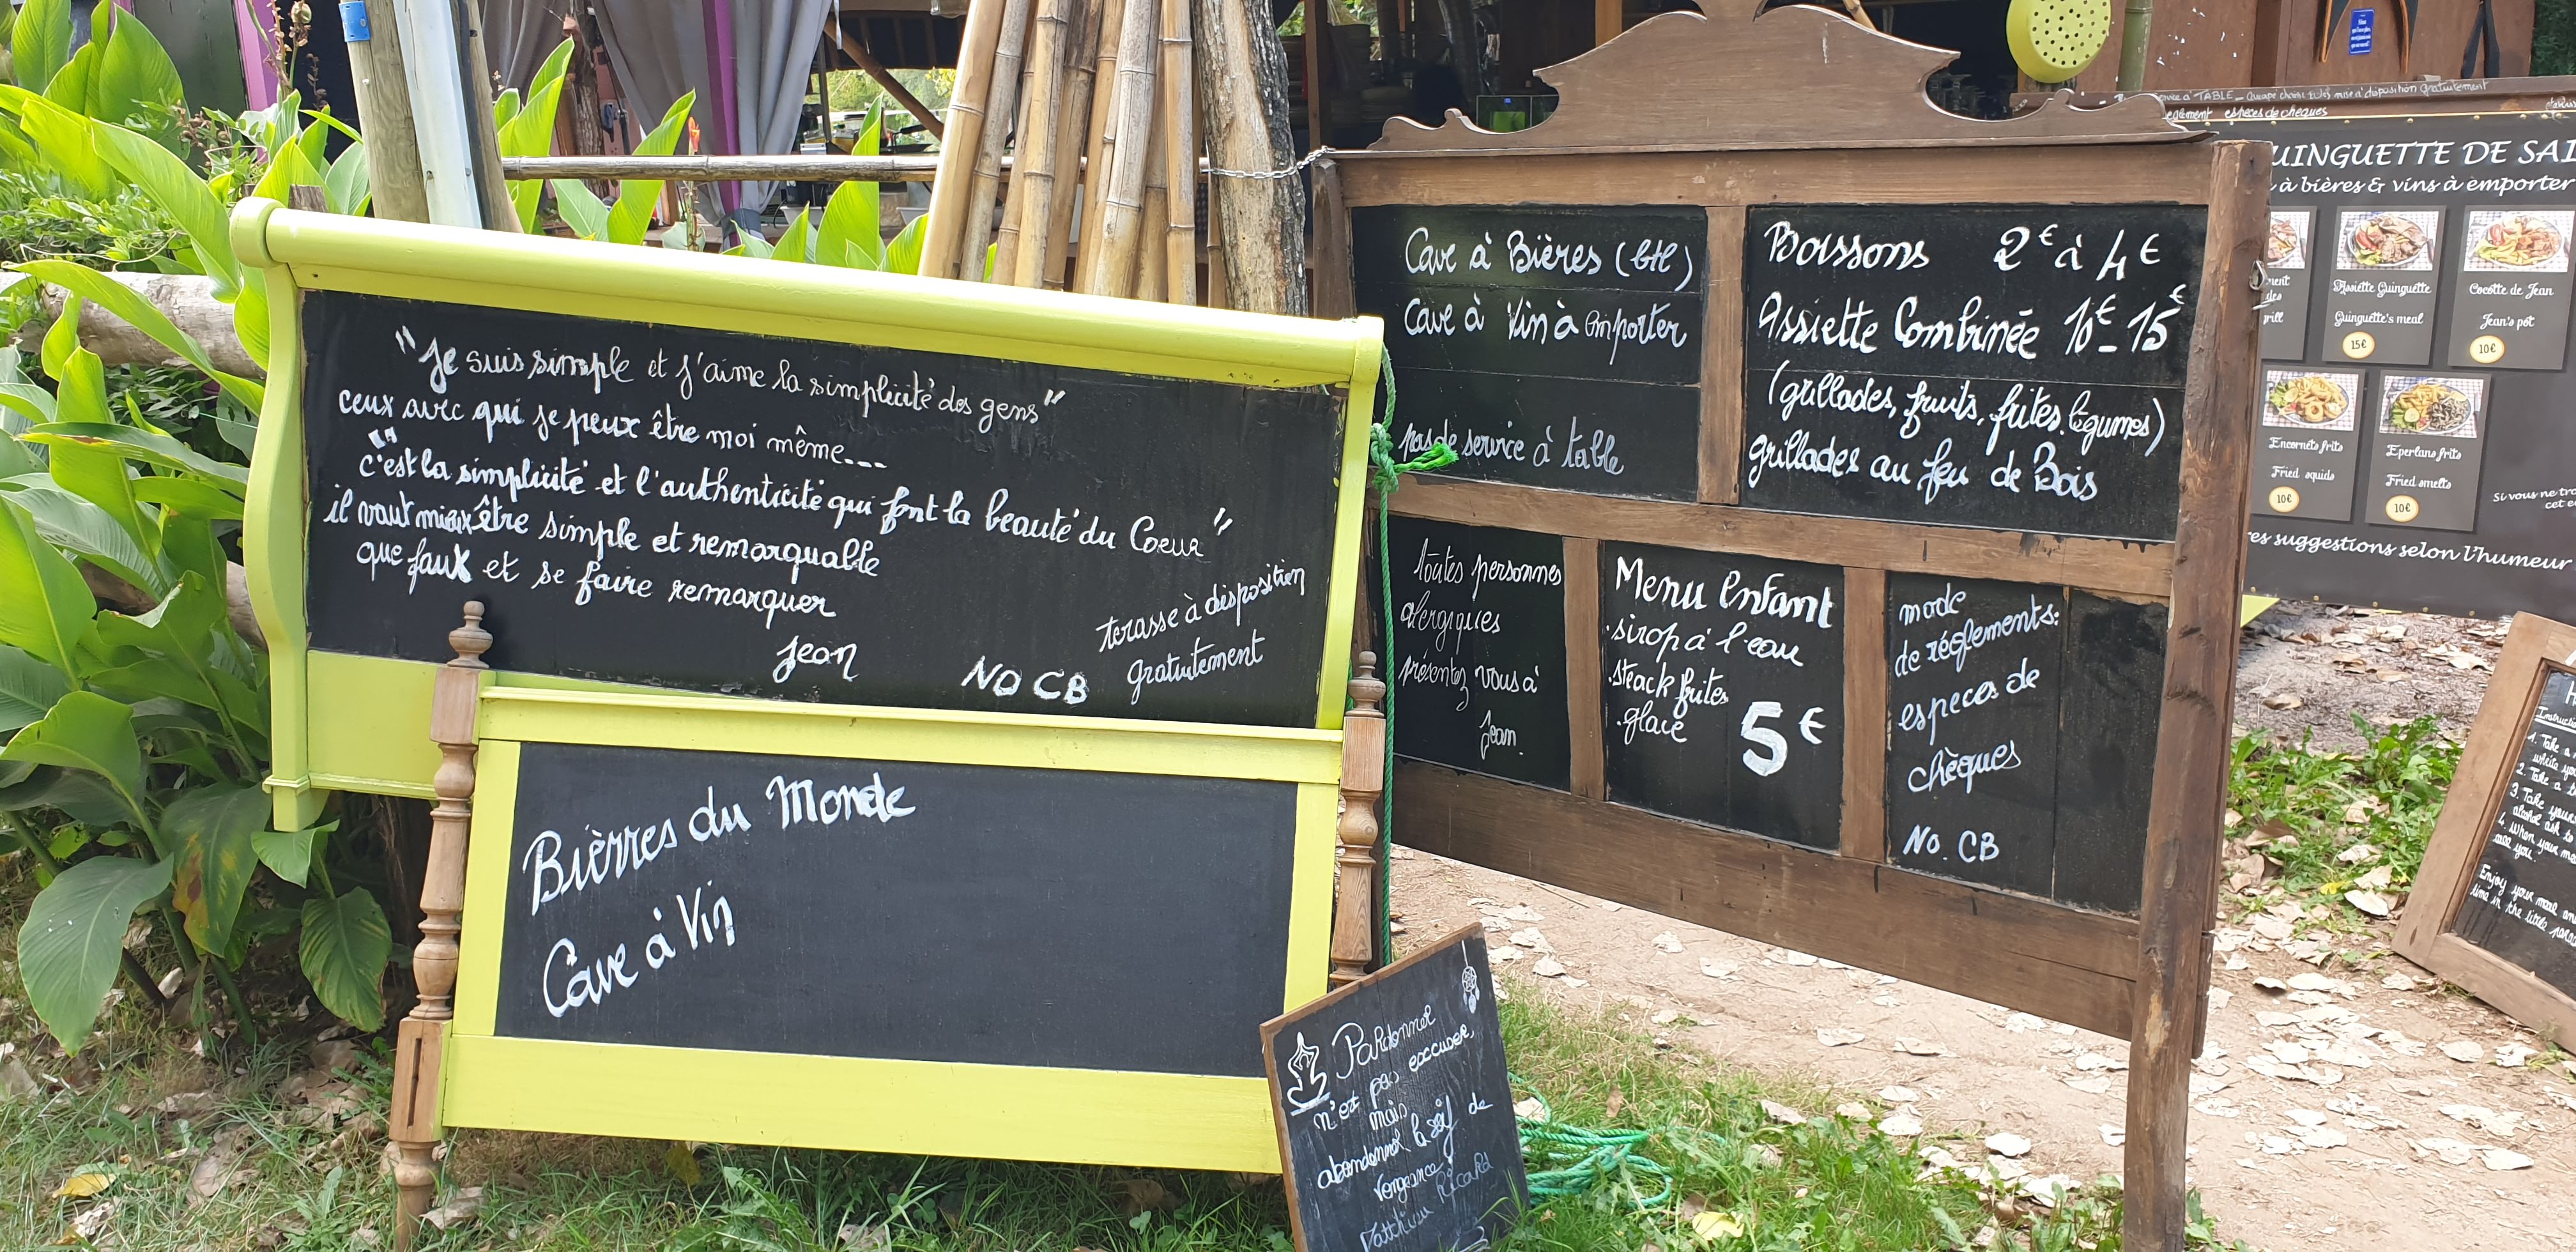 "Je suis simple et j'aime la simplicité des gens"
ceux avec qui je peux être moi même...
"c'est la simplicité et l'authenticité qui font la beauté du Coeur"
il vaut mieux être simple et remarquable
que faux et se faire remarquer
Jean
NO CB
terasse à disposition
gratuitement
Bièrres du Monde
Cave à Vin
Pardonner
n'est pas excuser,
mais
abandonner la soif de
vengeance
Matthieu Ricard
Cave à Bières (btl)
Cave à Vin à emporter
pas de service à table
Boissons 2€ à 4€
Assiette Combinée 10€-15€
(grillades, fruits, frites, légumes)
grillades au feu de Bois
toutes personnes
alergiques
présentez vous à
Jean.
Menu Enfant
.sirop à l'eau
.steack frites
.glace
5€
mode
de réglements:
especes de
chèques
No. CB
à TABLE
mise à disposition gratuitement
especes de cheques
UINGUETTE DE SAI
à bières & vins à emporter
Assiette Guinguette
Guinguette's meal
15€
Cocotte de Jean
Jean's pot
10€
Encornets frits
Fried squids
10€
Eperlans frits
Fried smelts
10€
Si vous ne
cet
es suggestions selon l'humeur
1. Take a
2. Take a
3. Take your
alcohol ask to
4. When your me
Enjoy your meal and
time in the little